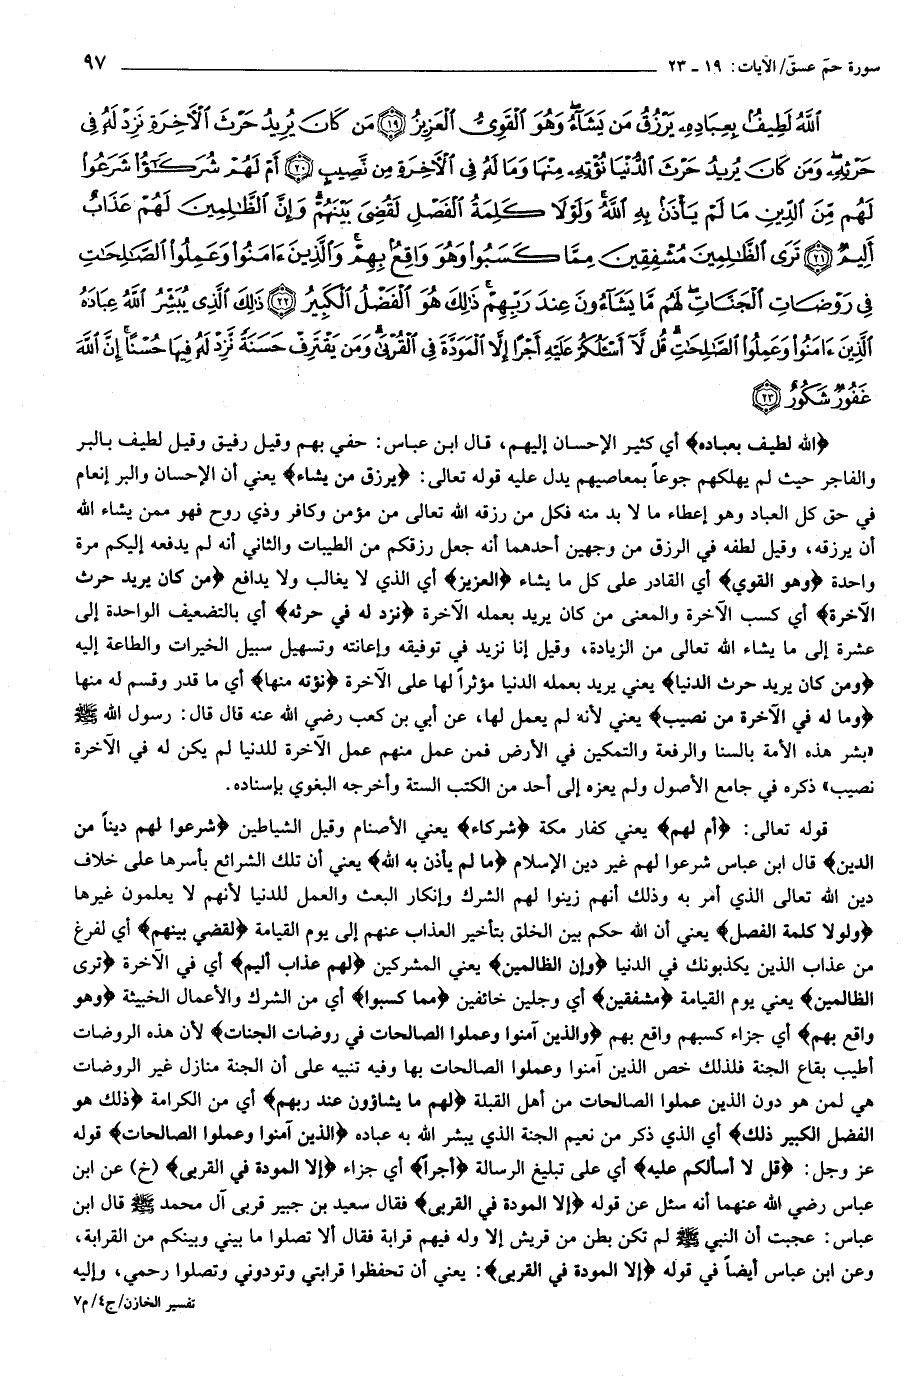 سورة حمّ عسق/ الآيات: ١٩ - ٢٣ ٩٧
اللَّهُ لَطِيفٌ بِعِبَادِهِ يَرْزُقُ مَن يَشَاءُ وَهُوَ الْقَوِيُّ الْعَزِيزُ ١٩ مَن كَانَ يُرِيدُ حَرْثَ الْآخِرَةِ نَزِدْ لَهُ فِي
حَرْثِهِ وَمَن كَانَ يُرِيدُ حَرْثَ الدُّنْيَا نُؤْتِهِ مِنْهَا وَمَا لَهُ فِي الْآخِرَةِ مِن نَّصِيبٍ ٢٠ أَمْ لَهُمْ شُرَكَٰٓؤُا شَرَعُوا
لَهُم مِّنَ الدِّينِ مَا لَمْ يَأْذَن بِهِ اللَّهُ وَلَوْلَا كَلِمَةُ الْفَصْلِ لَقُضِيَ بَيْنَهُمْ وَإِنَّ الظَّالِمِينَ لَهُمْ عَذَابٌ
أَلِيمٌ ٢١ تَرَى الظَّالِمِينَ مُشْفِقِينَ مِمَّا كَسَبُوا وَهُوَ وَاقِعٌ بِهِمْ وَالَّذِينَ ءَامَنُوا وَعَمِلُوا الصَّالِحَاتِ
فِي رَوْضَاتِ الْجَنَّاتِ لَهُم مَّا يَشَاءُونَ عِندَ رَبِّهِمْ ذَلِكَ هُوَ الْفَضْلُ الْكَبِيرُ ٢٢ ذَلِكَ الَّذِي يُبَشِّرُ اللَّهُ عِبَادَهُ
الَّذِينَ ءَامَنُوا وَعَمِلُوا الصَّالِحَاتِ قُل لَّا أَسْئَلُكُمْ عَلَيْهِ أَجْرًا إِلَّا الْمَوَدَّةَ فِي الْقُرْبَى وَمَن يَقْتَرِفْ حَسَنَةً نَّزِدْ لَهُ فِيهَا حُسْنًا إِنَّ اللَّهَ
غَفُورٌ شَكُورٌ ٢٣
﴿الله لطيف بعباده﴾ أي كثير الإحسان إليهم، قال ابن عباس: حفي بهم وقيل رفيق وقيل لطيف بالبر
والفاجر حيث لم يهلكهم جوعاً بمعاصيهم يدل عليه قوله تعالى: ﴿يرزق من يشاء﴾ يعني أن الإحسان والبر إنعام
في حق كل العباد وهو إعطاء ما لا بد منه فكل من رزقه الله تعالى من مؤمن وكافر وذي روح فهو ممن يشاء الله
أن يرزقه، وقيل لطفه في الرزق من وجهين أحدهما أنه جعل رزقكم من الطيبات والثاني أنه لم يدفعه إليكم مرة
واحدة ﴿وهو القوي﴾ أي القادر على كل ما يشاء ﴿العزيز﴾ أي الذي لا يغالب ولا يدافع ﴿من كان يريد حرث
الآخرة﴾ أي كسب الآخرة والمعنى من كان يريد بعمله الآخرة ﴿نزد له في حرثه﴾ أي بالتضعيف الواحدة إلى
عشرة إلى ما يشاء الله تعالى من الزيادة، وقيل إنا نزيد في توفيقه وإعانته وتسهيل سبيل الخيرات والطاعة إليه
﴿ومن كان يريد حرث الدنيا﴾ يعني يريد بعمله الدنيا مؤثراً لها على الآخرة ﴿نؤته منها﴾ أي ما قدر وقسم له منها
﴿وما له في الآخرة من نصيب﴾ يعني لأنه لم يعمل لها، عن أبي بن كعب رضي الله عنه قال قال: رسول الله ﷺ
«بشر هذه الأمة بالسنا والرفعة والتمكين في الأرض فمن عمل منهم عمل الآخرة للدنيا لم يكن له في الآخرة
نصيب» ذكره في جامع الأصول ولم يعزه إلى أحد من الكتب الستة وأخرجه البغوي بإسناده.
قوله تعالى: ﴿أم لهم﴾ يعني كفار مكة ﴿شركاء﴾ يعني الأصنام وقيل الشياطين ﴿شرعوا لهم ديناً من
الدين﴾ قال ابن عباس شرعوا لهم غير دين الإسلام ﴿ما لم يأذن به الله﴾ يعني أن تلك الشرائع بأسرها على خلاف
دين الله تعالى الذي أمر به وذلك أنهم زينوا لهم الشرك وإنكار البعث والعمل للدنيا لأنهم لا يعلمون غيرها
﴿ولولا كلمة الفصل﴾ يعني أن الله حكم بين الخلق بتأخير العذاب عنهم إلى يوم القيامة ﴿لقضي بينهم﴾ أي لفرغ
من عذاب الذين يكذبونك في الدنيا ﴿وإن الظالمين﴾ يعني المشركين ﴿لهم عذاب أليم﴾ أي في الآخرة ﴿ترى
الظالمين﴾ يعني يوم القيامة ﴿مشفقين﴾ أي وجلين خائفين ﴿مما كسبوا﴾ أي من الشرك والأعمال الخبيثة ﴿وهو
واقع بهم﴾ أي جزاء كسبهم واقع بهم ﴿والذين آمنوا وعملوا الصالحات في روضات الجنات﴾ لأن هذه الروضات
أطيب بقاع الجنة فلذلك خص الذين آمنوا وعملوا الصالحات بها وفيه تنبيه على أن الجنة منازل غير الروضات
هي لمن هو دون الذين عملوا الصالحات من أهل القبلة ﴿لهم ما يشاؤون عند ربهم﴾ أي من الكرامة ﴿ذلك هو
الفضل الكبير ذلك﴾ أي الذي ذكر من نعيم الجنة الذي يبشر الله به عباده ﴿الذين آمنوا وعملوا الصالحات﴾ قوله
عز وجل: ﴿قل لا أسألكم عليه﴾ أي على تبليغ الرسالة ﴿أجراً﴾ أي جزاء ﴿إلا المودة في القربى﴾ (خ) عن ابن
عباس رضي الله عنهما أنه سئل عن قوله ﴿إلا المودة في القربى﴾ فقال سعيد بن جبير قربى آل محمد ﷺ قال ابن
عباس: عجبت أن النبي ﷺ لم تكن بطن من قريش إلا وله فيهم قرابة فقال ألا تصلوا ما بيني وبينكم من القرابة،
وعن ابن عباس أيضاً في قوله ﴿إلا المودة في القربى﴾: يعني أن تحفظوا قرابتي وتودوني وتصلوا رحمي، وإليه
تفسير الخازن/ج٤/م٧